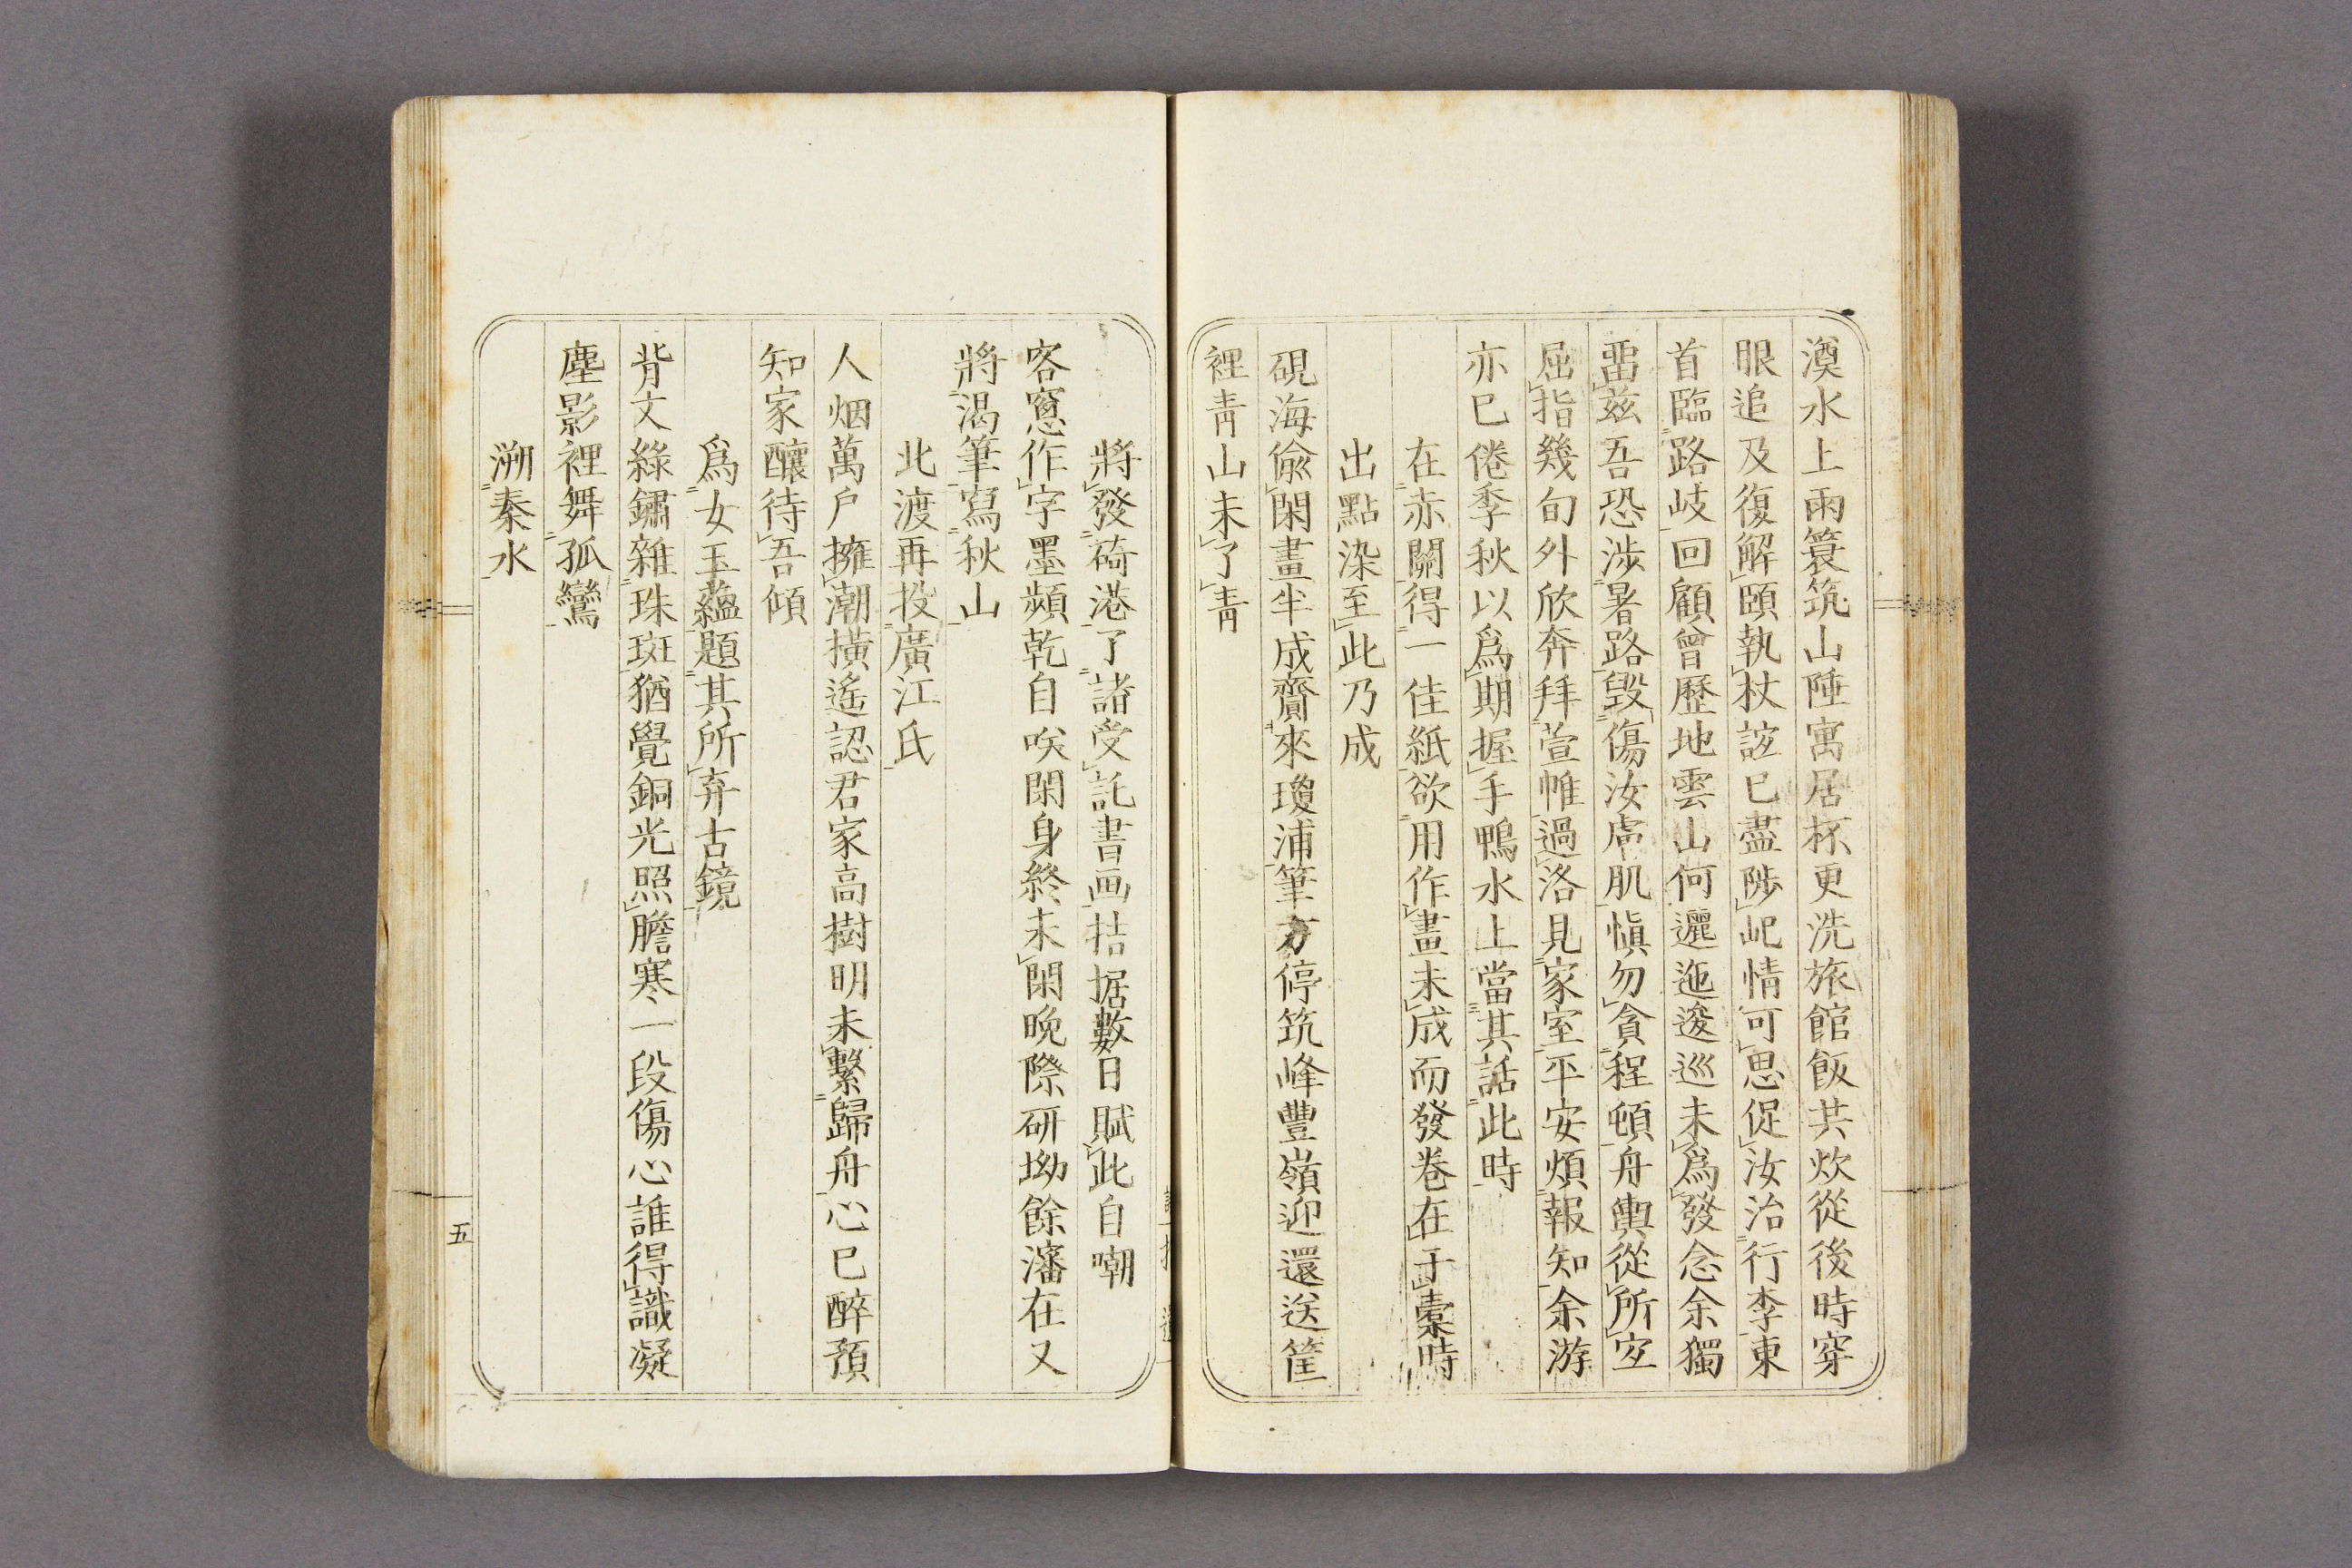 澳水上雨簑筑山陲寓居杯更洗旅館飯共炊從後時穿
眼追及復解頤執杖誼已盡陟屺情可思促汝治行李東
首臨路岐回顧曾歷地雲山何邐迤逡巡未爲發念余獨
畱茲吾恐涉暑路毀傷汝膚肌愼勿貪程頓舟輿從所宜
屈指幾旬外欣奔拜萱帷過洛見家室平安煩報知余游
亦已倦季秋以爲期握手鴨水上當其話此時
在赤關得一佳紙欲用作畫未成而發巻在于橐時
出點染至此乃成
硯海偸閑畫半成齎來瓊浦筆方停筑峰豐嶺迎還送筐
裡靑山未了靑
將發碕港了諸受託書画拮据數日賦此自嘲
客窓作字墨頻乾自咲閑身終未閑晩際研坳餘瀋在又
將渴筆寫秋山
北渡再投廣江氏
人烟萬戶擁潮橫遙認君家高樹明未繫歸舟心已醉預
知家釀待吾傾
爲女玉蘊題其所弃古鏡
背文綠鏽雜珠斑猶覺銅光照膽寒一段傷心誰得識凝
塵影裡舞孤鸞
溯秦水
五